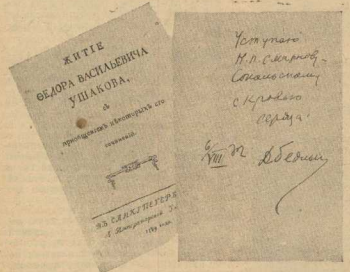 ЖИТІЕ
ѲЕДОРА ВАСИЛЬЕВИЧА
УШАКОВА,
съ
приобщеніемъ нѣкоторыхъ его
сочиненій.
ВЪ САНКТПЕТЕРБ
1789 года.
Уступаю
Н.П. Смирнову-
Сокольскому
с кровью
сердца!
6/VIII 32 Д. Бедный